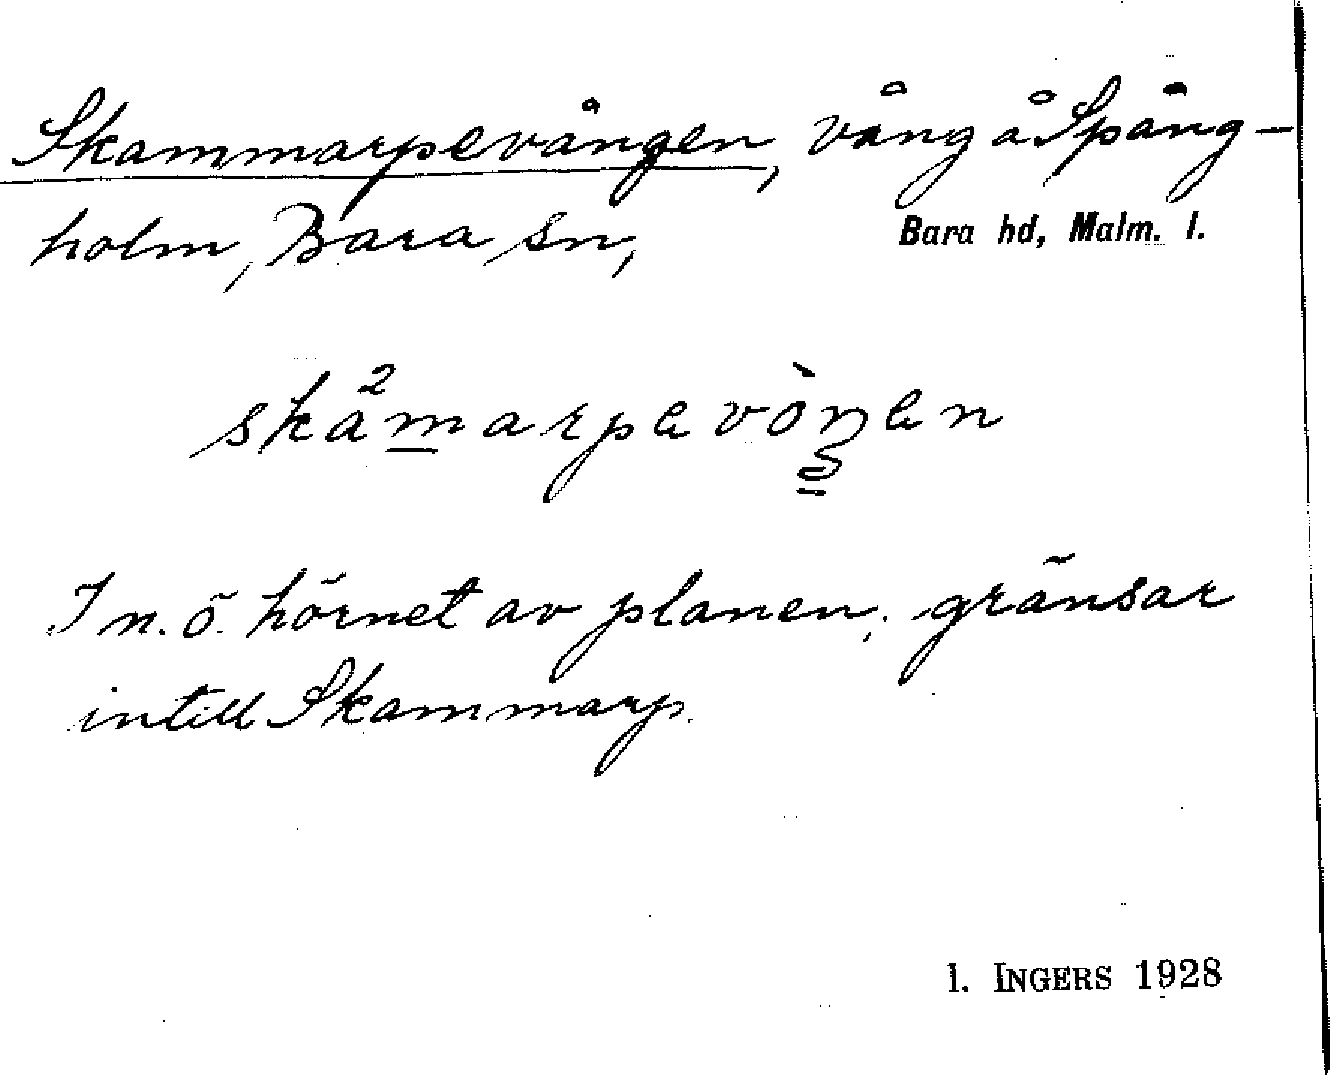 Skammarpevången, vång å Spång-
holm, Bara sn, Bara hd, Malm. l.
In. ö. hörnet av planen, gränsar
intill Skammarp.
I. INGERS 1928